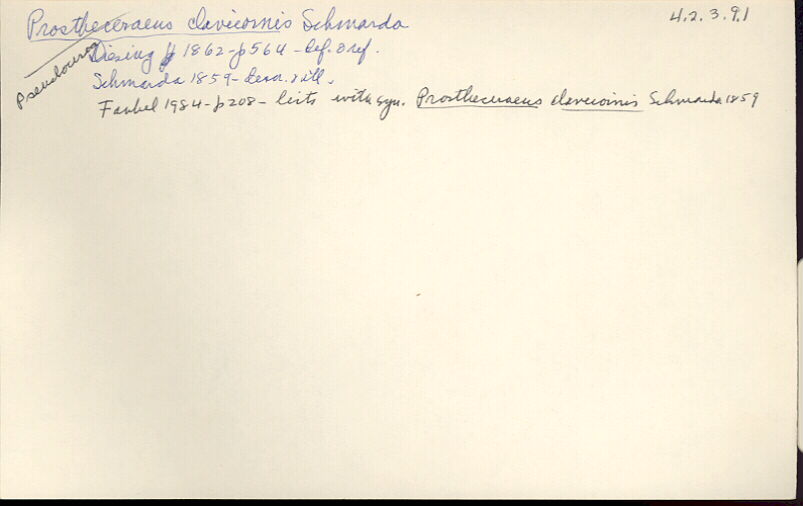 4.2.3.91
Prostheceraeus clavicornis Schmarda
Pseudoceros
Diesing 1862-p564-def. & ref.
Schmarda 1859-descr. & ill.
Faubel 1984-p208- lists with syn. Prostheceraeus clavicornis Schmarda 1859